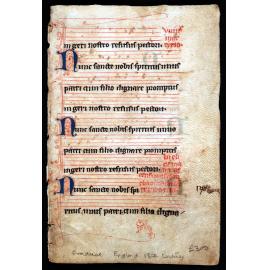 ingeri nostro refusus pectori
Nunc sancte nobis spiritus unus
patri cum filio dignare promptus
ingeri nostro refusus pectori.
Nunc sancte nobis spiritus unus
patri cum filio dignare promptus
ingeri nostro refusus pectori.
Nunc sancte nobis spi
ritus, unus patri cum filio digna
England 13th Century
£300